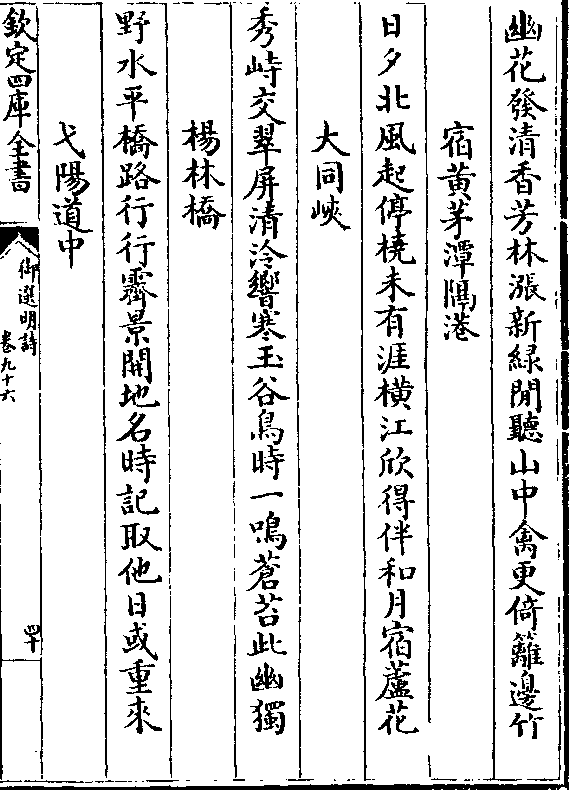 幽花發清香芳林漲新緑閒聽山中禽更倚籬邊竹
宿黄茅潭隅港
日夕北風起停橈未有涯横江欣得伴和月宿蘆花
大同峽
秀峙交翠屏清泠響寒玉谷鳥時一鳴蒼苔此幽獨
楊林橋
野水平橋路行行霽景開地名時記取他日或重來
弋陽道中
欽定四庫全書
御選明詩
卷九十六
四十